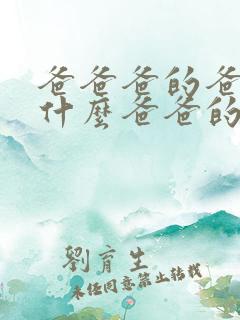 爸爸爸的爸
什麼爸爸的
劉育生
未經同意禁止轉載